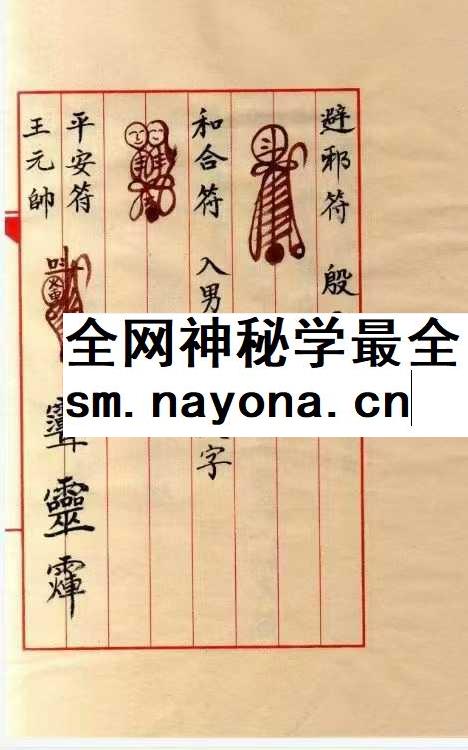 避邪符 殷
和合符 入男
字
平安符
王元帥
靈
全网神秘学最全
sm.nayona.cn